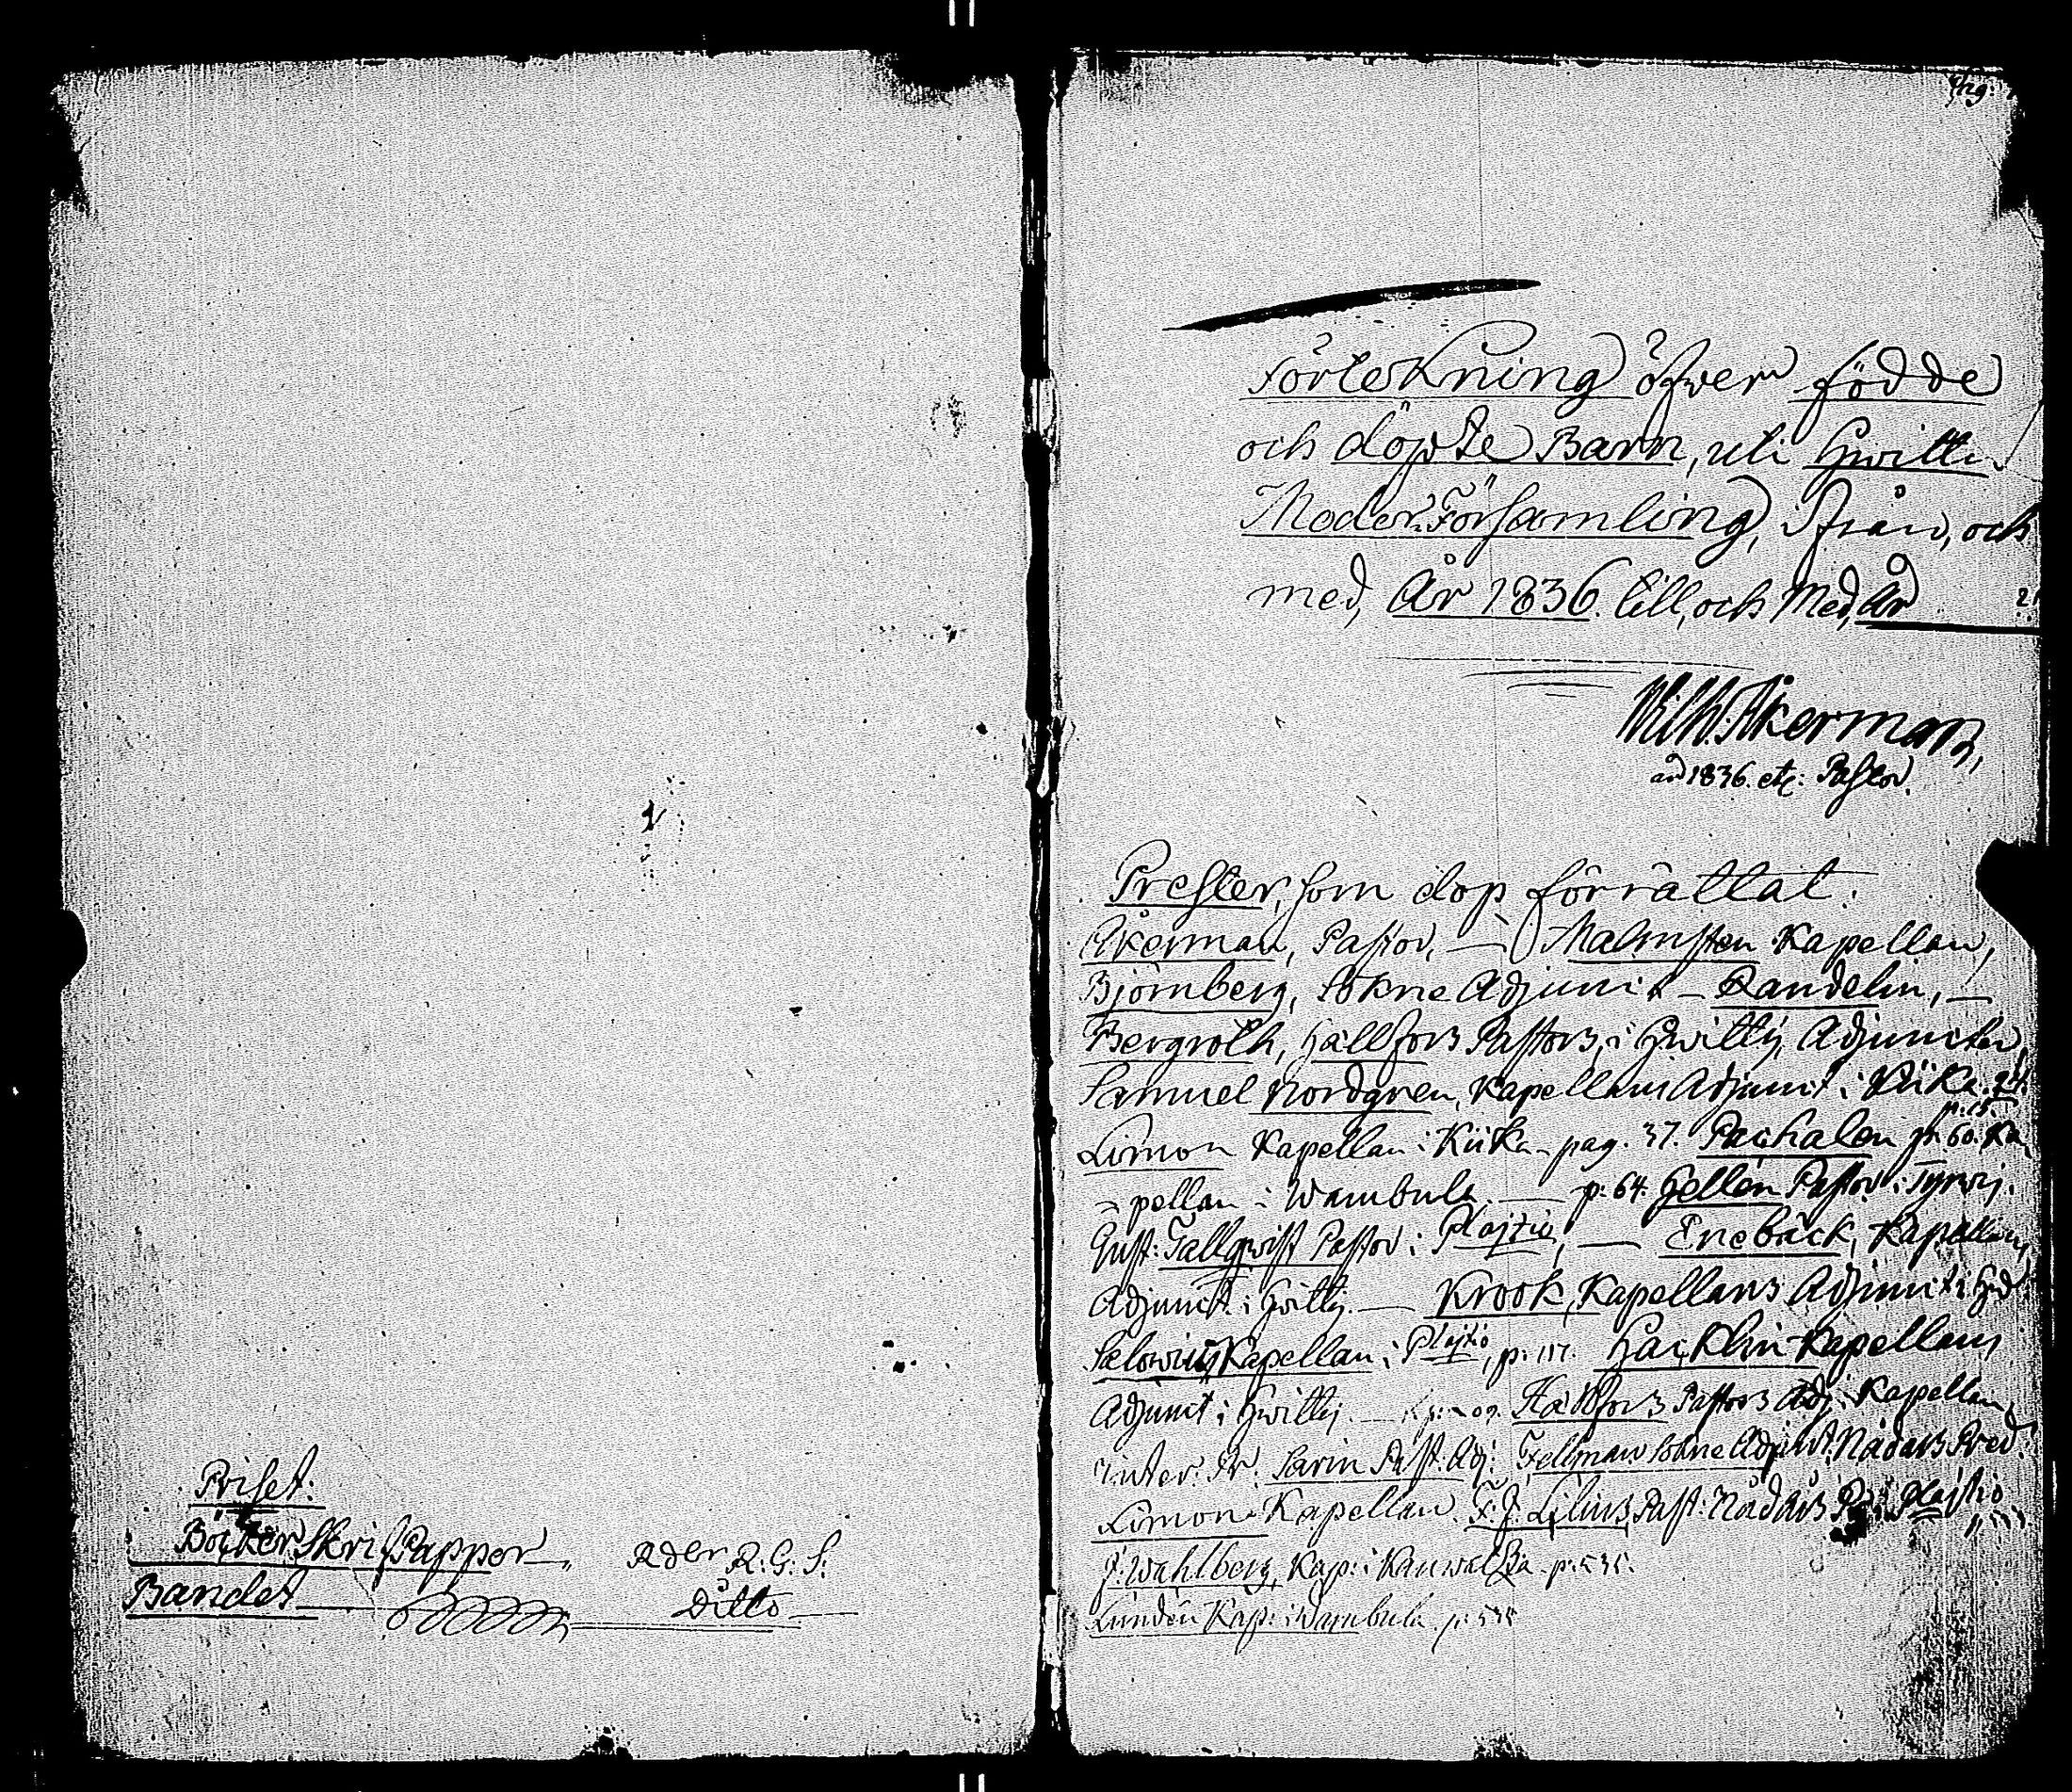 Priset:
Böcker Skrif Papper 2 der R:G:S:
Bandet Ditto
Pag:
Förtekning öfver födde
och döpte Barn, uti Hvittis
Moder Församling, ifrån, och
med, År 1836. till, och Med, År
Wilh. Åkerman,
1836. etc: Pastor.
Prester, som dop förrättat.
Åkerman, Pastor, — Malmsten Kapellan,
Björnberg, Sokne Adjunct — Randelin, —
Bergroth, Hällfors Pastors, i Hvittis, Adjuncter,
Samuel Nordgren, Kapellans Adjunct i Kiika. 24.
p. 15.
Limon Kapellan i Kiika pag. 37. Pachalen p. 60. Ka
pellan i Wambula. — p: 64. Gellén Pastor i Tyrvis.
Gust: Tallqvist Pastor i Plojtio, — Enebäck, Kapellans
Adjunct i Hvittis. — Krook, Kapellans Adjunct i
Salovius, Kapellan i Plojtio, p: 117. Hacklin Kapellans
Adjunct i Hvittis. — Hällfors Pastors Adj. Kapellan,
Sarin Past: Adj: Fellman Sokne Adjunct. Nådårs Pred.
Limon Kapellan. F. J. Lilius Past: Nådårs Pr: i Plojtio
J. Wahlberg, Kap: i Kauwatsa p: 535.
Lindén Kap: i Wambula. p: 535